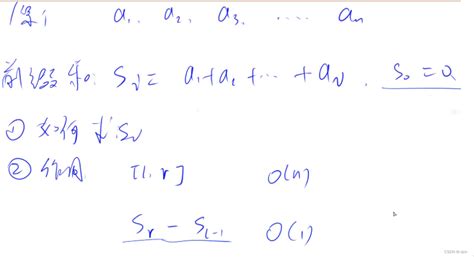 a₁. a₂. a₃. ..... aₙ
前缀和: Sᵢ = a₁+a₂+...+aᵢ. S₀=0
① 如何求Sᵢ
② 作用 [l, r] O(n)
Sᵣ - Sₗ₋₁ O(1)